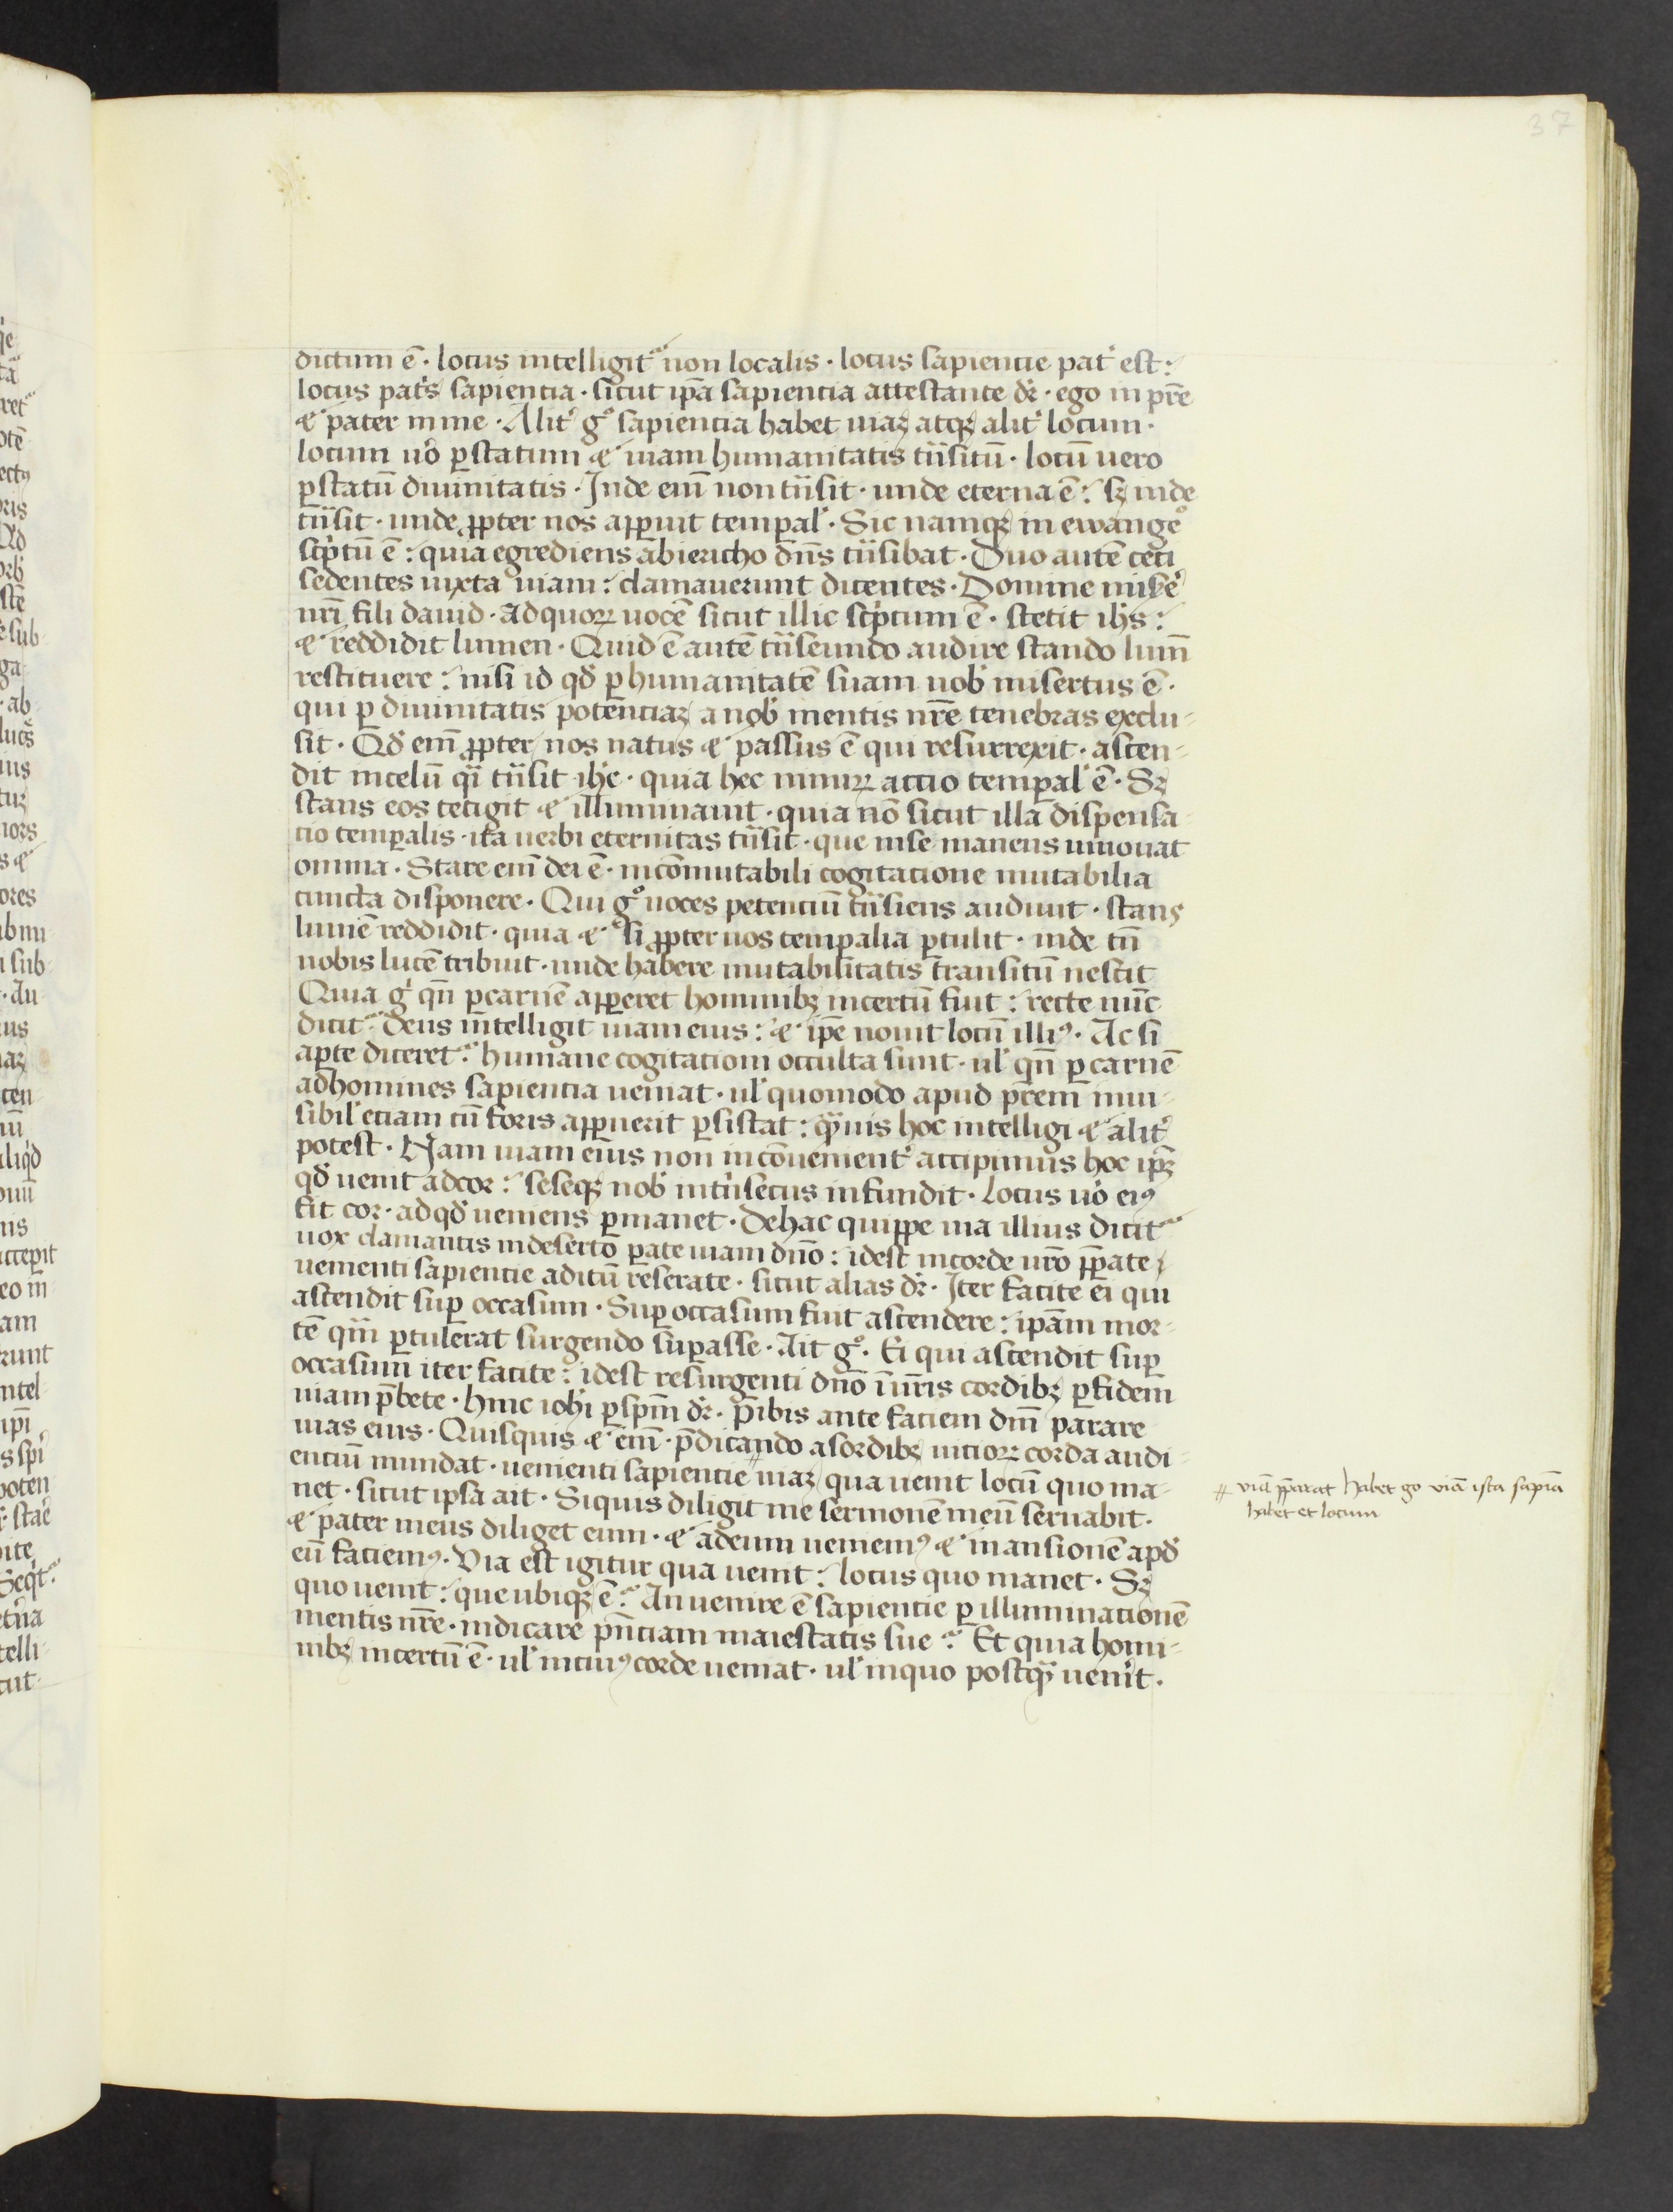 37
dictum ē · locus intelligit᷑ non localis · locus sapientie pat̉ est :
locus pat̉s sapientia · sicut ip̄a sapientia attestante dr̄ · ego in pr̄e
⁊ pater in me · Alit̉ gͦ sapientia habet uiaꝫ atqꝫ alit̉ locum ·
locum uo̓ ꝑ statum ⁊ uiam humanitatis t̄nsitū · locū uero
ꝑ statū diuinitatis · Inde eni̅ non t̄nsit · unde eterna ē : sꝫ inde
t̄nsit · unde ꝓpter nos apꝑuit tempal̓ · Sic namqꝫ in ewangͦe
sc̓ptū ē : quia egrediens ab iericho dn̄s t̄nsibat · Duo autē ceci
sedentes iuxta uiam : clamauerunt dicentes · Domine mise̓
nr̄i fili dauid · Ad quoꝝ uocē sicut illic sc̓ptum ē · stetit ih̄s :
⁊ reddidit lumen · Quid ē autē t̄nseundo audire stando lum̄
restituere : nisi id qd̓ ꝑ humanitatē suam nob̓ misertus ē ·
qui ꝑ diuinitatis potentiaꝫ a nob̓ mentis nr̄e tenebras exclu-
sit · Qd̓ eni̅ ꝓpter nos natus ⁊ passus ē qui resurrexit · ascen-
dit in celū q̄i t̄nsit ih̄c · quia hec nimiꝝ actio tempal̓ ē · Sꝫ
stans eos tetigit ⁊ illuminauit · quia nō sicut illa dispensa
tio tempalis · ita uerbi eternitas t̄nsit · que in se manens innouat
omnia · Stare eni̅ dei ē · incōmutabili cogitatione mutabilia
cuncta disponere · Qui gͦ uoces petentiū t̄nsiens audiuit · stans
lumē reddidit · quia ⁊ si ꝓpter nos tempalia ꝑtulit · inde tn̄
nobis lucē tribuit · unde habere mutabilitatis transitū nescit
Quia g̓ qn̄ ꝑ carnē apꝑeret hominibꝫ incertū fuit : recte nūc
dicit᷑ Deus intelligit uiam eius : ⁊ ip̄e nouit locū illiꝰ · Ac si
apte diceret᷑ humane cogitationi occulta sunt · ul̓ qn̄ ꝑ carnē
ad homines sapientia ueniat · ul̓ quomodo apud pr̄em inui-
sibil̓ etiam cū foris apꝑuerit ꝑsistat : q̄uis hoc intelligi ⁊ alit̉
potest · Nam uiam eius non incōuenient̉ accipimus hoc ip̄ꝫ
qd̓ uenit ad cor : seseqꝫ nob̓ int̓nsecus infundit · Locus uo̓ eiꝰ
fit cor · ad qd̓ ueniens ꝑmanet · De hac quippe uia illius dicit᷑
uox clamantis in deserto ꝑate uiam dn̄o : id est in corde nr̄o p̄ꝑate
uenienti sapientie aditū reserate · sicut alias dr̄ · Iter facite ei qui
ascendit suꝑ occasum · Suꝑ occasum fuit ascendere : ip̄am mor-
tē q̄m ꝑtulerat surgendo suꝑasse · Ait gͦ · Ei qui ascendit suꝑ
occasum iter facite : id est resurgenti dn̄o ī ur̄is cordibꝫ ꝑ fidem
uiam p̄bete · hinc ioh̓i ꝑ sp̄m dr̄ · P̄ibis ante faciem dn̄i parare
uias eius · Quisquis ⁊ eni̅ · p̄dicando a sordibꝫ uitioꝝ corda audi-
entiū mundat · uenienti sapientie ⸗ uiaꝫ qua uenit locū quo ma-
net · sicut ipsa ait · Siquis diligit me sermonē meū seruabit ·
⁊ pater meus diliget eum · ⁊ ad eum ueniemꝰ ⁊ mansionē apd̓
eū faciemꝰ · Via est igitur qua uenit : locus quo manet · Sꝫ
quo uenit : que ubiqꝫ ē᷑ An uenire ē sapientie ꝑ illuminationē
mentis nr̄e · indicare p̄ntiam maiestatis sue ᷑ Et quia homi-
nibꝫ incertū ē · ul̓ in cuiꝰ corde ueniat · ul̓ in quo postq̄ uenit̓ ·
⸗ viā p̄ꝑarat habet go viā ista sapīa
habet et locum